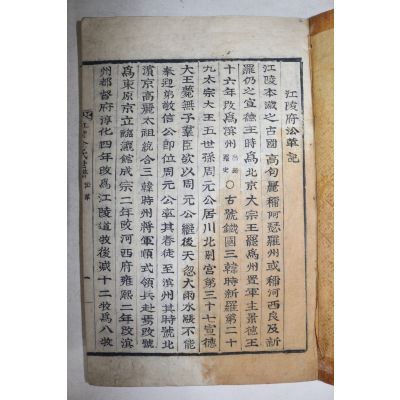 江陵府沿革記
江陵本濊之古國高句麗稱阿瑟羅州或稱河西良及新
羅仍之宣德王時爲北京大宗王罷爲州置軍主景德王
十六年改爲溟州出輿麗史○古號鐵國三韓時新羅第二十
九太宗大王五世孫周元公居川北尉宮第三十七宣德
大王薨無子羣臣欲以周元公繼後天忽大雨水漲不能
奉迎弟敬信公卽位周元公率其眷徒至溟州其時號北
濱京高麗太祖統合三韓時州將軍順式領兵赴焉改號
爲東原京立臨瀛館成宗二年改河西府雍熙二年改溟
州都督府淳化四年改爲江陵道牧後減十二牧爲八牧
沿革
一